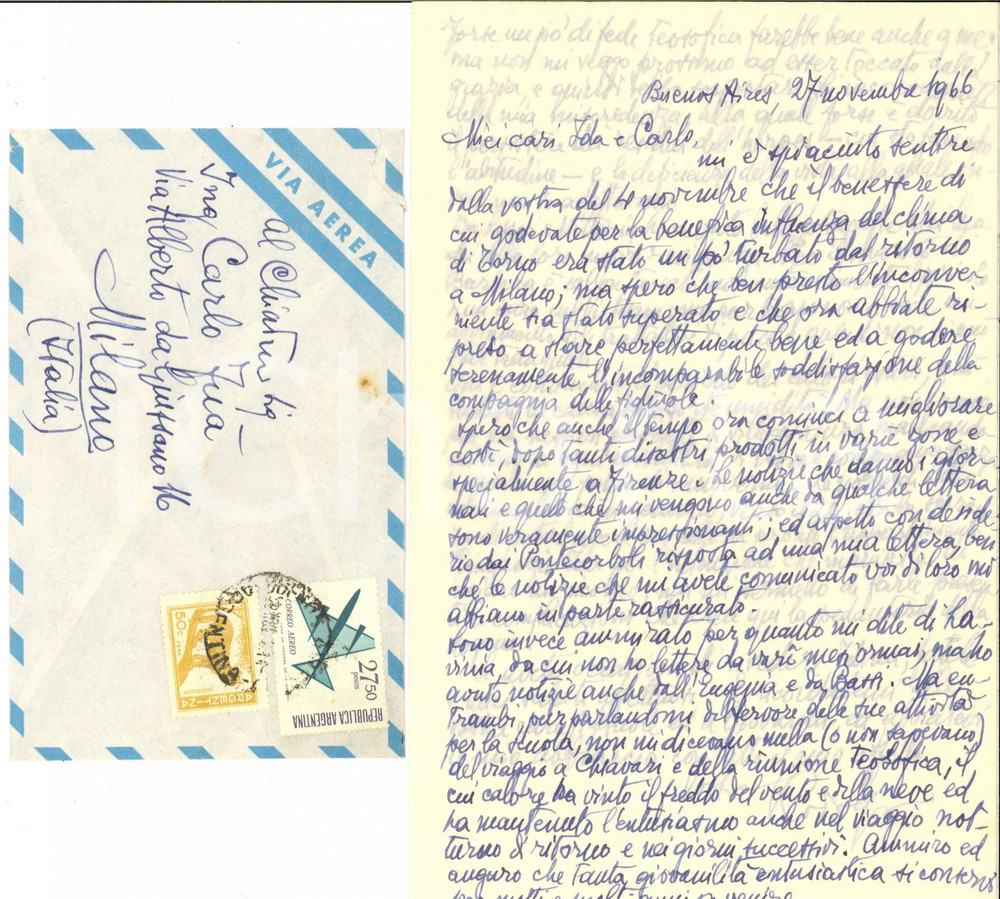 VIA AEREA
Al Chiar.mo Sig
Ing. Carlo
Via Alberto da Giussano 16
Milano
(Italia)
50c
ARGENTINA
CORREO AEREO
27.50
pesos
REPUBLICA ARGENTINA
Forse un po' di fede Teosofica farebbe bene anche a me,
ma non mi veggo prossimo ad esser toccato dalla
grazia, e quindi
Buenos Aires, 27 novembre 1966
Miei cari Ida e Carlo,
mi è spiaciuto sentire
dalla vostra del 4 novembre che il benessere di
cui godevate per la benefica influenza del clima
di Torno era stato un po' turbato dal ritorno
a Milano; ma spero che ben presto l'inconve-
niente sia stato superato e che ora abbiate ri-
preso a stare perfettamente bene ed a godere
serenamente l'incomparabile soddisfazione della
compagnia delle figliuole.
Spero che anche il tempo ora cominci a migliorare
costì, dopo tanti disastri prodotti in varie zone e
specialmente a Firenze. Le notizie che danno i gior-
nali e quelle che mi vengono anche da qualche lettera
sono veramente impressionanti; ed aspetto con deside-
rio dai Pontecorboli risposta ad una mia lettera, ben-
ché le notizie che mi avete comunicato voi di loro mi
abbiano in parte rassicurato.
Sono invece ammirato per quanto mi dite di La-
vinia da cui non ho lettere da vari mesi ormai, ma ho
avuto notizie anche dall'Eugenia e da Bassi. Ma en-
trambi, pur parlandomi del fervore delle sue attività
per la scuola, non mi dicevano nulla (o non sapevano)
del viaggio a Chiavari e della riunione Teosofica, il
cui calore ha vinto il freddo del vento e della neve ed
ha mantenuto l'entusiasmo anche nel viaggio not-
turno di ritorno e nei giorni successivi. Ammiro ed
auguro che tanta giovanilità entusiastica si conservi
per molti e molti anni a venire